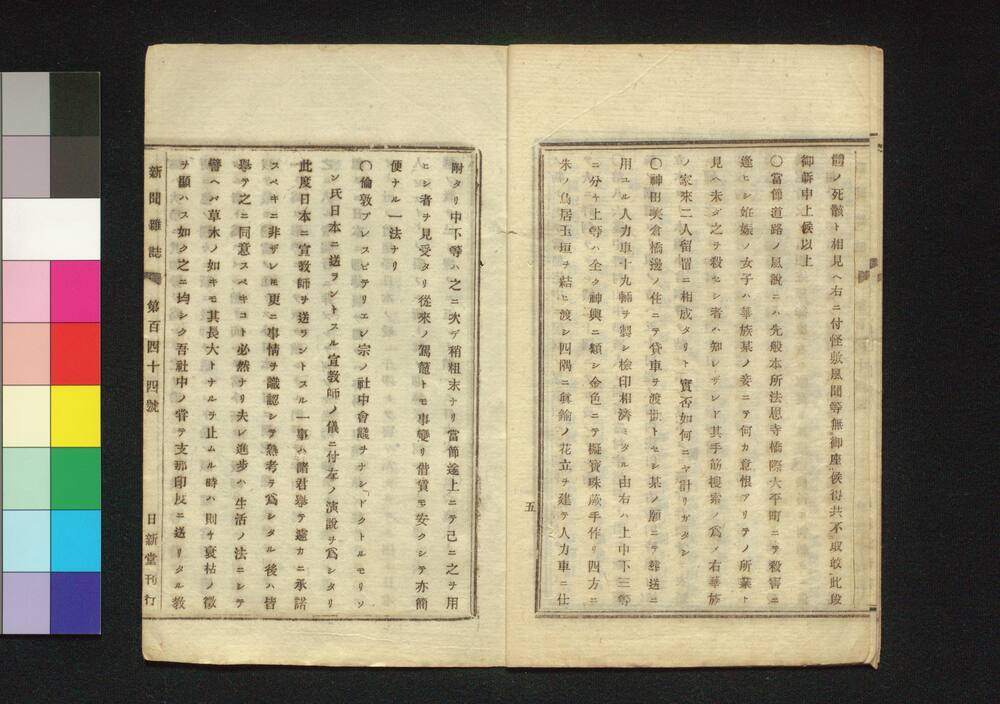 體ノ死骸ト相見ヘ右ニ付怪敷風聞等無御座候得共不取敢此段
御訴申上候以上
〇當節道路ノ風說ニハ先般本所法恩寺橋際太平町ニテ殺害ニ
逢ヒシ妊娠ノ女子ハ華族某ノ妾ニテ何カ意恨アリテノ所業ト
見ヘ未ダ之ヲ殺セシ者ハ知レザレド其手筋搜索ノ爲メ右華族
ノ家來二人留置ニ相成タリト實否如何ニヤ計リガタシ
〇神田美倉橋邊ノ住ニテ貸車ヲ渡世トセシ某ノ願ニテ葬送ニ
用ユル人力車十九輛ヲ製シ檢印相濟ミタル由右ハ上中下三等
ニ分チ上等ハ全ク神輿ニ類シ金色ニテ擬寶珠蕨手作リ四方ニ
朱ノ鳥居玉垣ヲ結ヒ渡シ四隅ニ眞鍮ノ花立ヲ建テ人力車ニ仕
五
附タリ中下等ハ之ニ次デ稍粗末ナリ當節途上ニテ己ニ之ヲ用
ヒシ者ヲ見受タリ從來ノ駕籠トモ事變リ借賃モ安クシテ亦簡
便ナル一法ナリ
〇倫敦プレスビテリエン宗ノ社中會議ヲナシ「ドクトルモリソ
ン氏日本ニ送ラントスル宣敎師ノ儀ニ付左ノ演說ヲ爲シタリ
此度日本ニ宣敎師ヲ送ラントスル一事ハ諸君擧テ遽カニ承諾
スベキニ非ザレ𪜈更ニ事情ヲ識認シテ熟考ヲ爲シタル後ハ皆
擧テ之ニ同意スベキコト必然ナリ夫レ進步ハ生活ノ法ニシテ
譬ヘバ草木ノ如キモ其長大トナルヲ止ムル時ハ則チ衰枯ノ徵
ヲ顯ハス如ク之ニ均シク吾社中ノ嘗テ支那印度ニ送リタル敎
新聞雜誌 第百四十四號 日新堂刊行